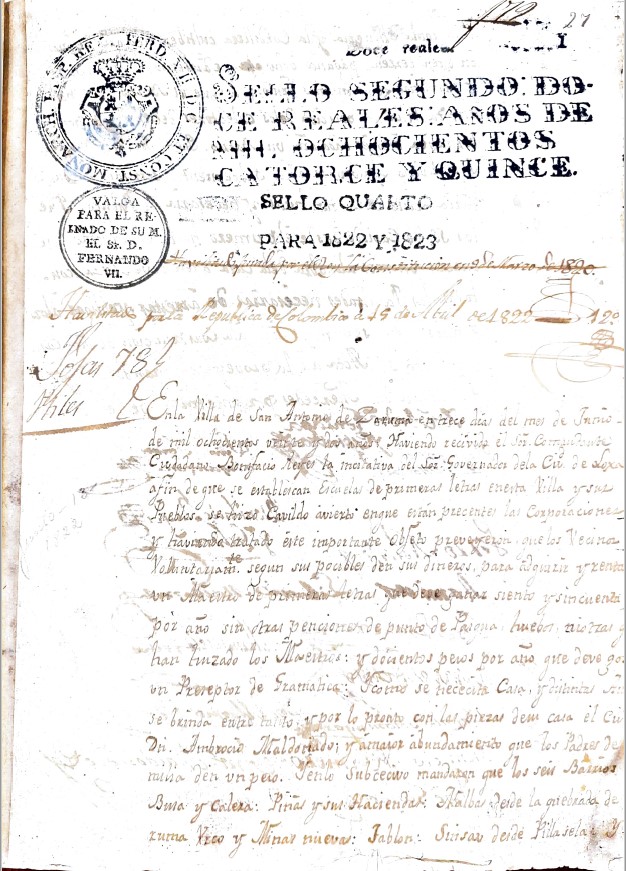 172 27
Doce reales
HISP. REX. FERD. VII. D. G. ET CONST. MONARCH
SELLO SEGUNDO: DO-
CE REALES: AÑOS DE
MIL OCHOCIENTOS
CATORCE Y QUINCE.
SELLO QUARTO
PARA 1822 Y 1823
VALGA
PARA EL RE-
INADO DE SU M.
EL Sr. D.
FERNANDO
VII.
la Constitucion en 9 de Marzo de 1820.
por la Republica de Colombia á 15 de Abril de 1822 12º
Fojas 78
Utiles
En la Villa de San Antonio de Zaruma en trece dias del mes de Junio
de mil ochocientos veinte y dos años, Haviendo recivido el Sor.
Ciudadano Bonifacio Reyes la incitativa del Sor. Governador dela Ciu. de Loxa
afin de qûe se establescan Escuelas de primeras letras enesta Villa y sus
Pueblos, se hizo Cavildo avierto enque están precentes las Corporaciones
y haviendo tratado éste importante Objeto preveyeron, que los Vecinos
Voluntariamte. segun sus pocibles dén sus dineros, para adquirir y renta
un Maestro de primeras letras que deve ganar siento y sincuenta
por año sin otras penciones de punto de Pasqua, huebos, ni otras
han huzado los Maestros: y docientos pesos por año que deve go
un Preseptor de Gramatica: Y como se nececita Casa, y distintas
se brinda entre tanto, y por lo pronto con las piezas desu casa él Ciu
Dn. Ambrocio Maldonado; y amaior abundamiento que los Padres de
milia dén un peso. Enlo Subcecivo mandaron que los seis Barrios
Busa y Calera: Piñas y sus Haciendas: Malbas desde la quebrada de
ruma Urco y Minas nuevas: Jablon: Sinsao desde Pillasela